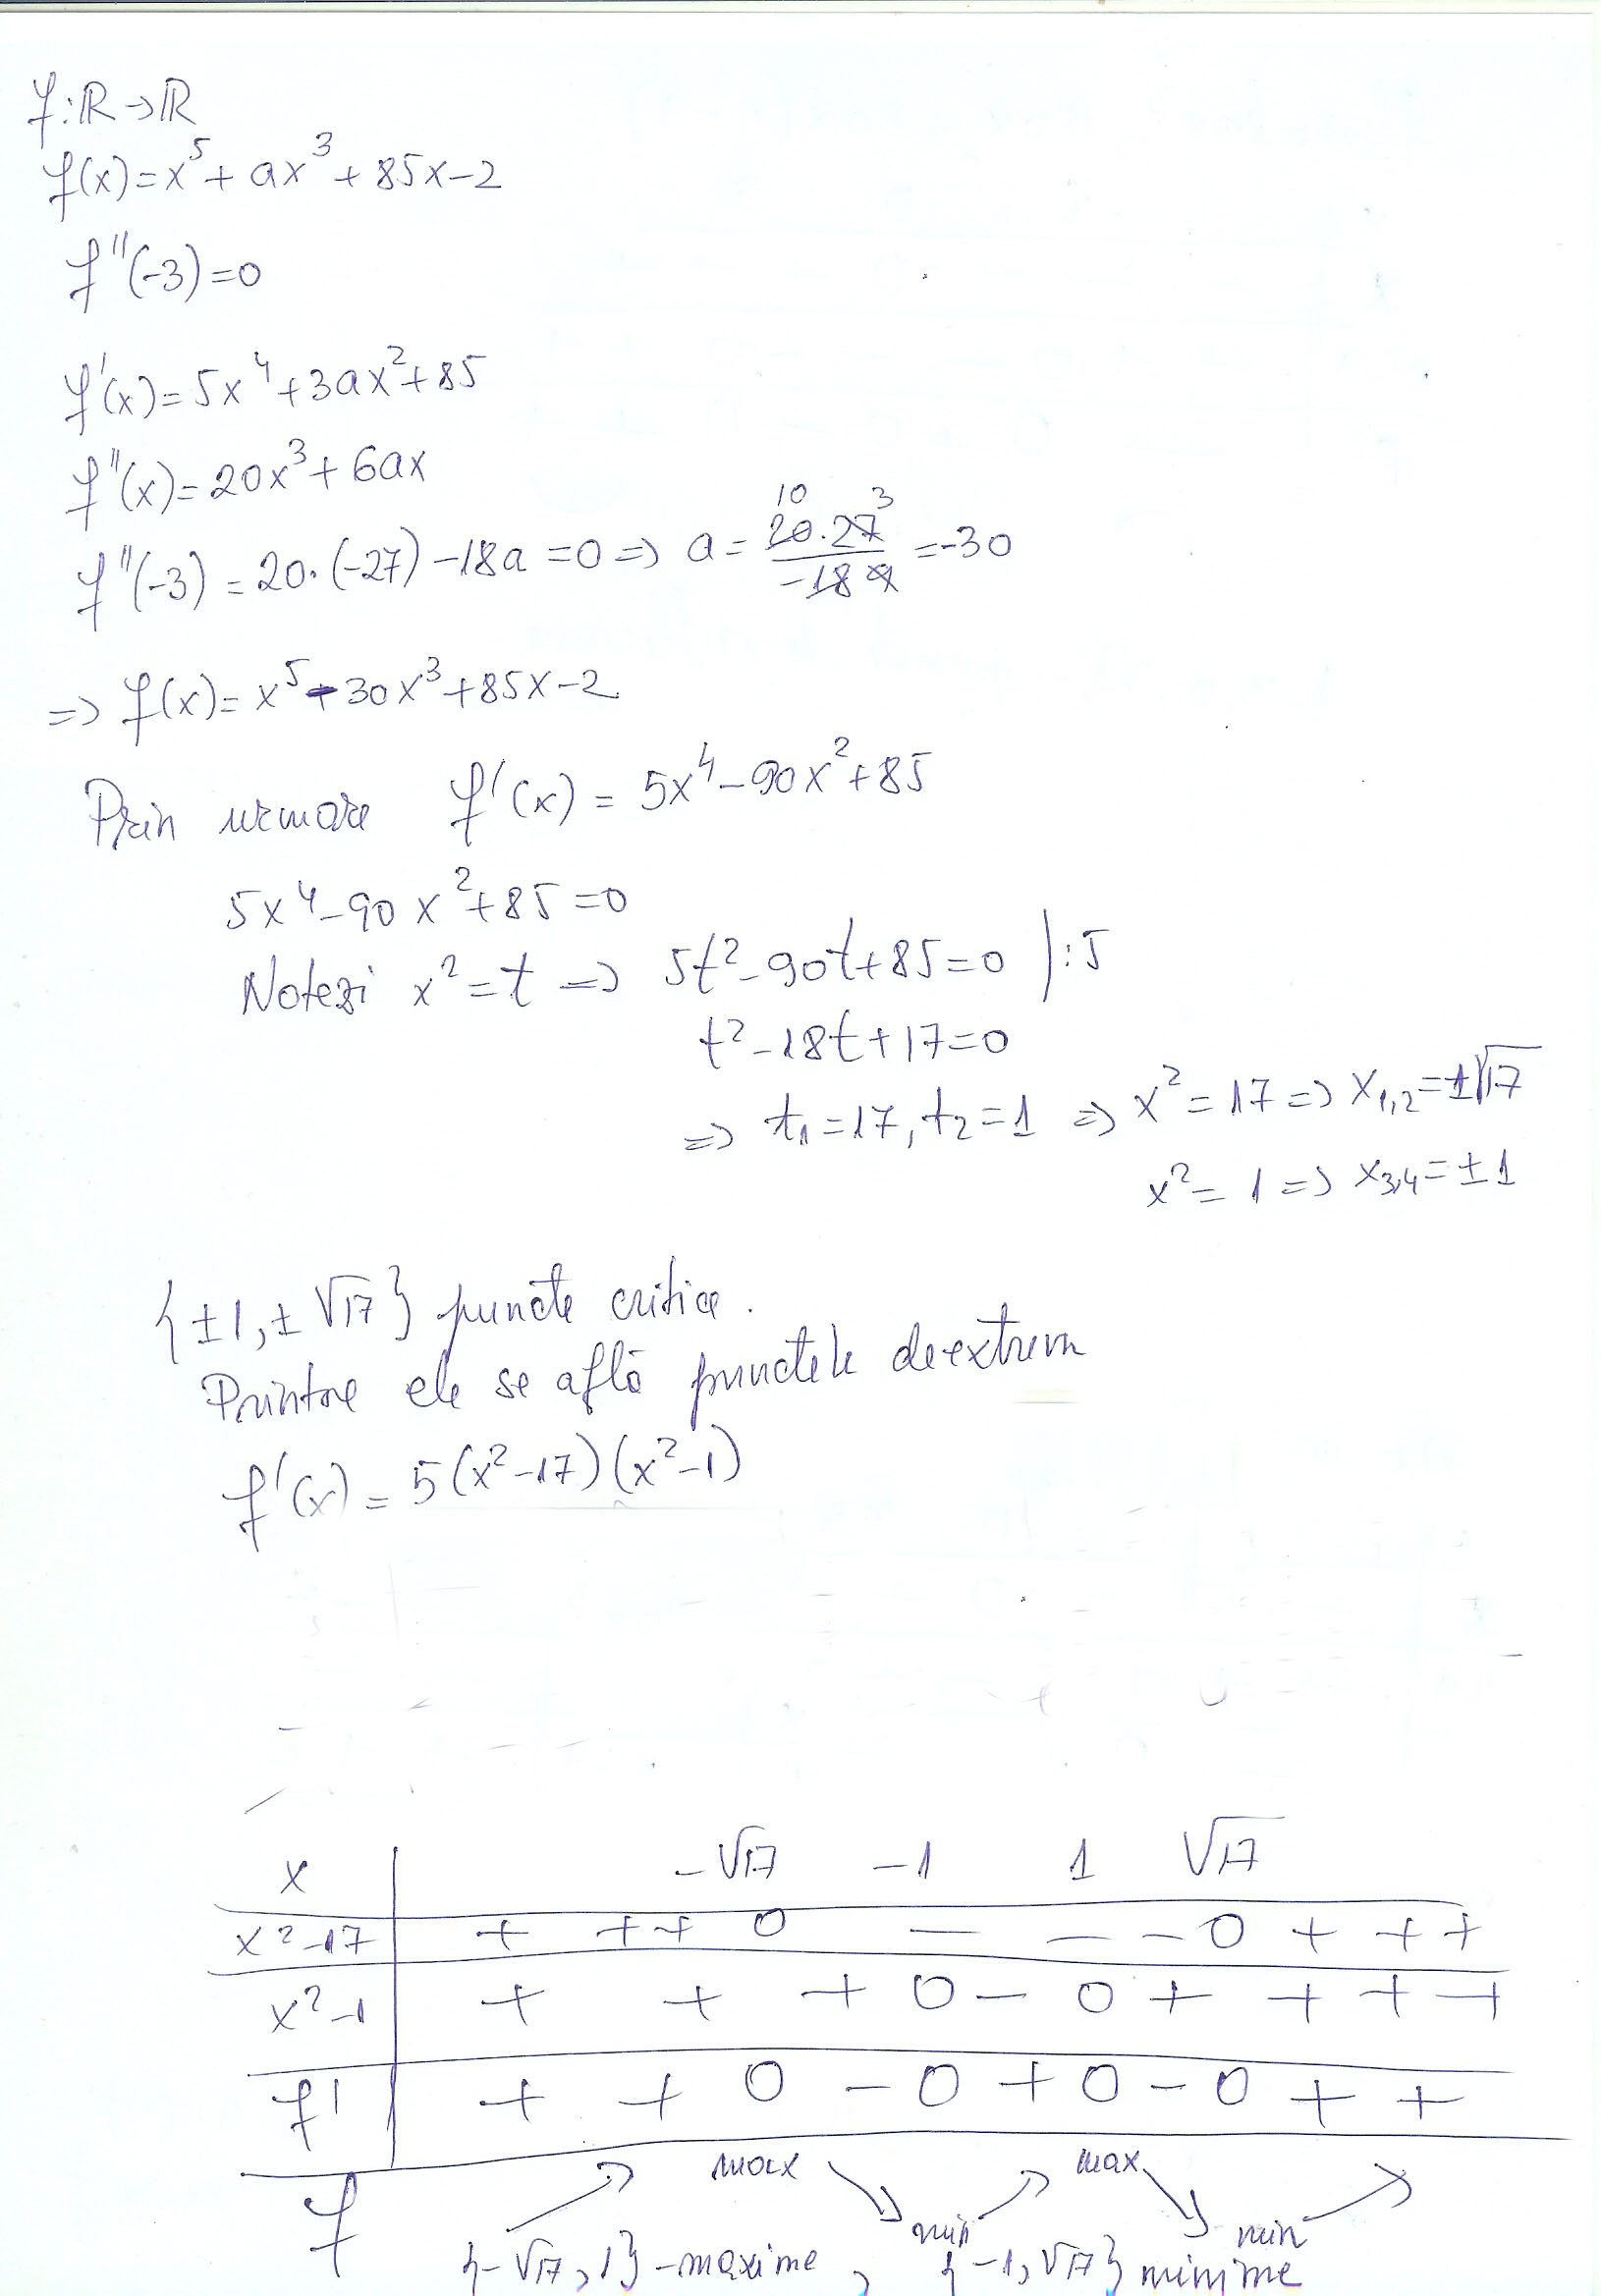 f:ℝ→ℝ
f(x)=x⁵+ax³+85x-2
f''(-3)=0
f'(x)=5x⁴+3ax²+85
f''(x)=20x³+6ax
f''(-3)=20·(-27)-18a=0=> a=20·27/-18=-30
10 3
=> f(x)=x⁵-30x³+85x-2
Prin urmare f'(x)=5x⁴-90x²+85
5x⁴-90x²+85=0
Notezi x²=t => 5t²-90t+85=0 |:5
t²-18t+17=0
=> t₁=17, t₂=1 => x²=17=> x₁,₂=±√17
x²=1=> x₃,₄=±1
{±1,±√17} puncte critice.
Printre ele se află punctele de extrem
f'(x)=5(x²-17)(x²-1)
x -√17 -1 1 √17
x²-17 + + + 0 - - - 0 + + +
x²-1 + + + 0 - 0 + + + +
f' + + 0 - 0 + 0 - 0 + +
f ↗ max ↘ min ↗ max ↘ min ↗
{-√17, 1}-maxime, {-1,√17} minime